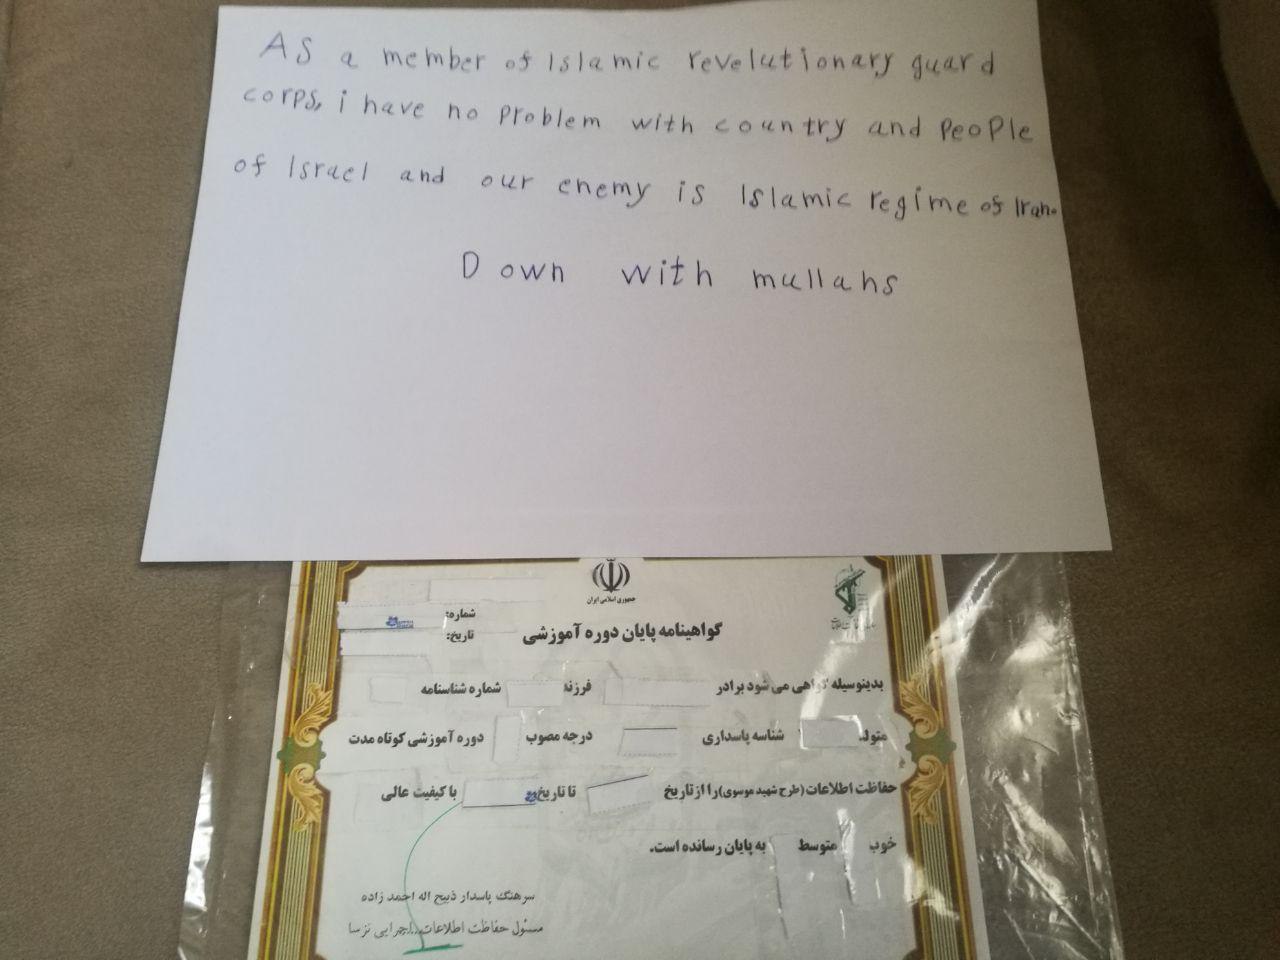 As a member of Islamic revelutionary guard
corps, i have no problem with country and people
of Israel and our enemy is Islamic regime of Iran.
Down with mullahs
جمهوری اسلامی ایران
شماره:
تاریخ:
گواهینامه پایان دوره آموزشی
بدینوسیله گواهی می شود برادر فرزند شماره شناسنامه
متولد شناسه پاسداری درجه مصوب دوره آموزشی کوتاه مدت
حفاظت اطلاعات (طرح شهید موسوی) را از تاریخ تا تاریخ با کیفیت عالی
خوب متوسط به پایان رسانده است.
سرهنگ پاسدار ذبیح اله احمد زاده
مسئول حفاظت اطلاعات اجرایی نزسا